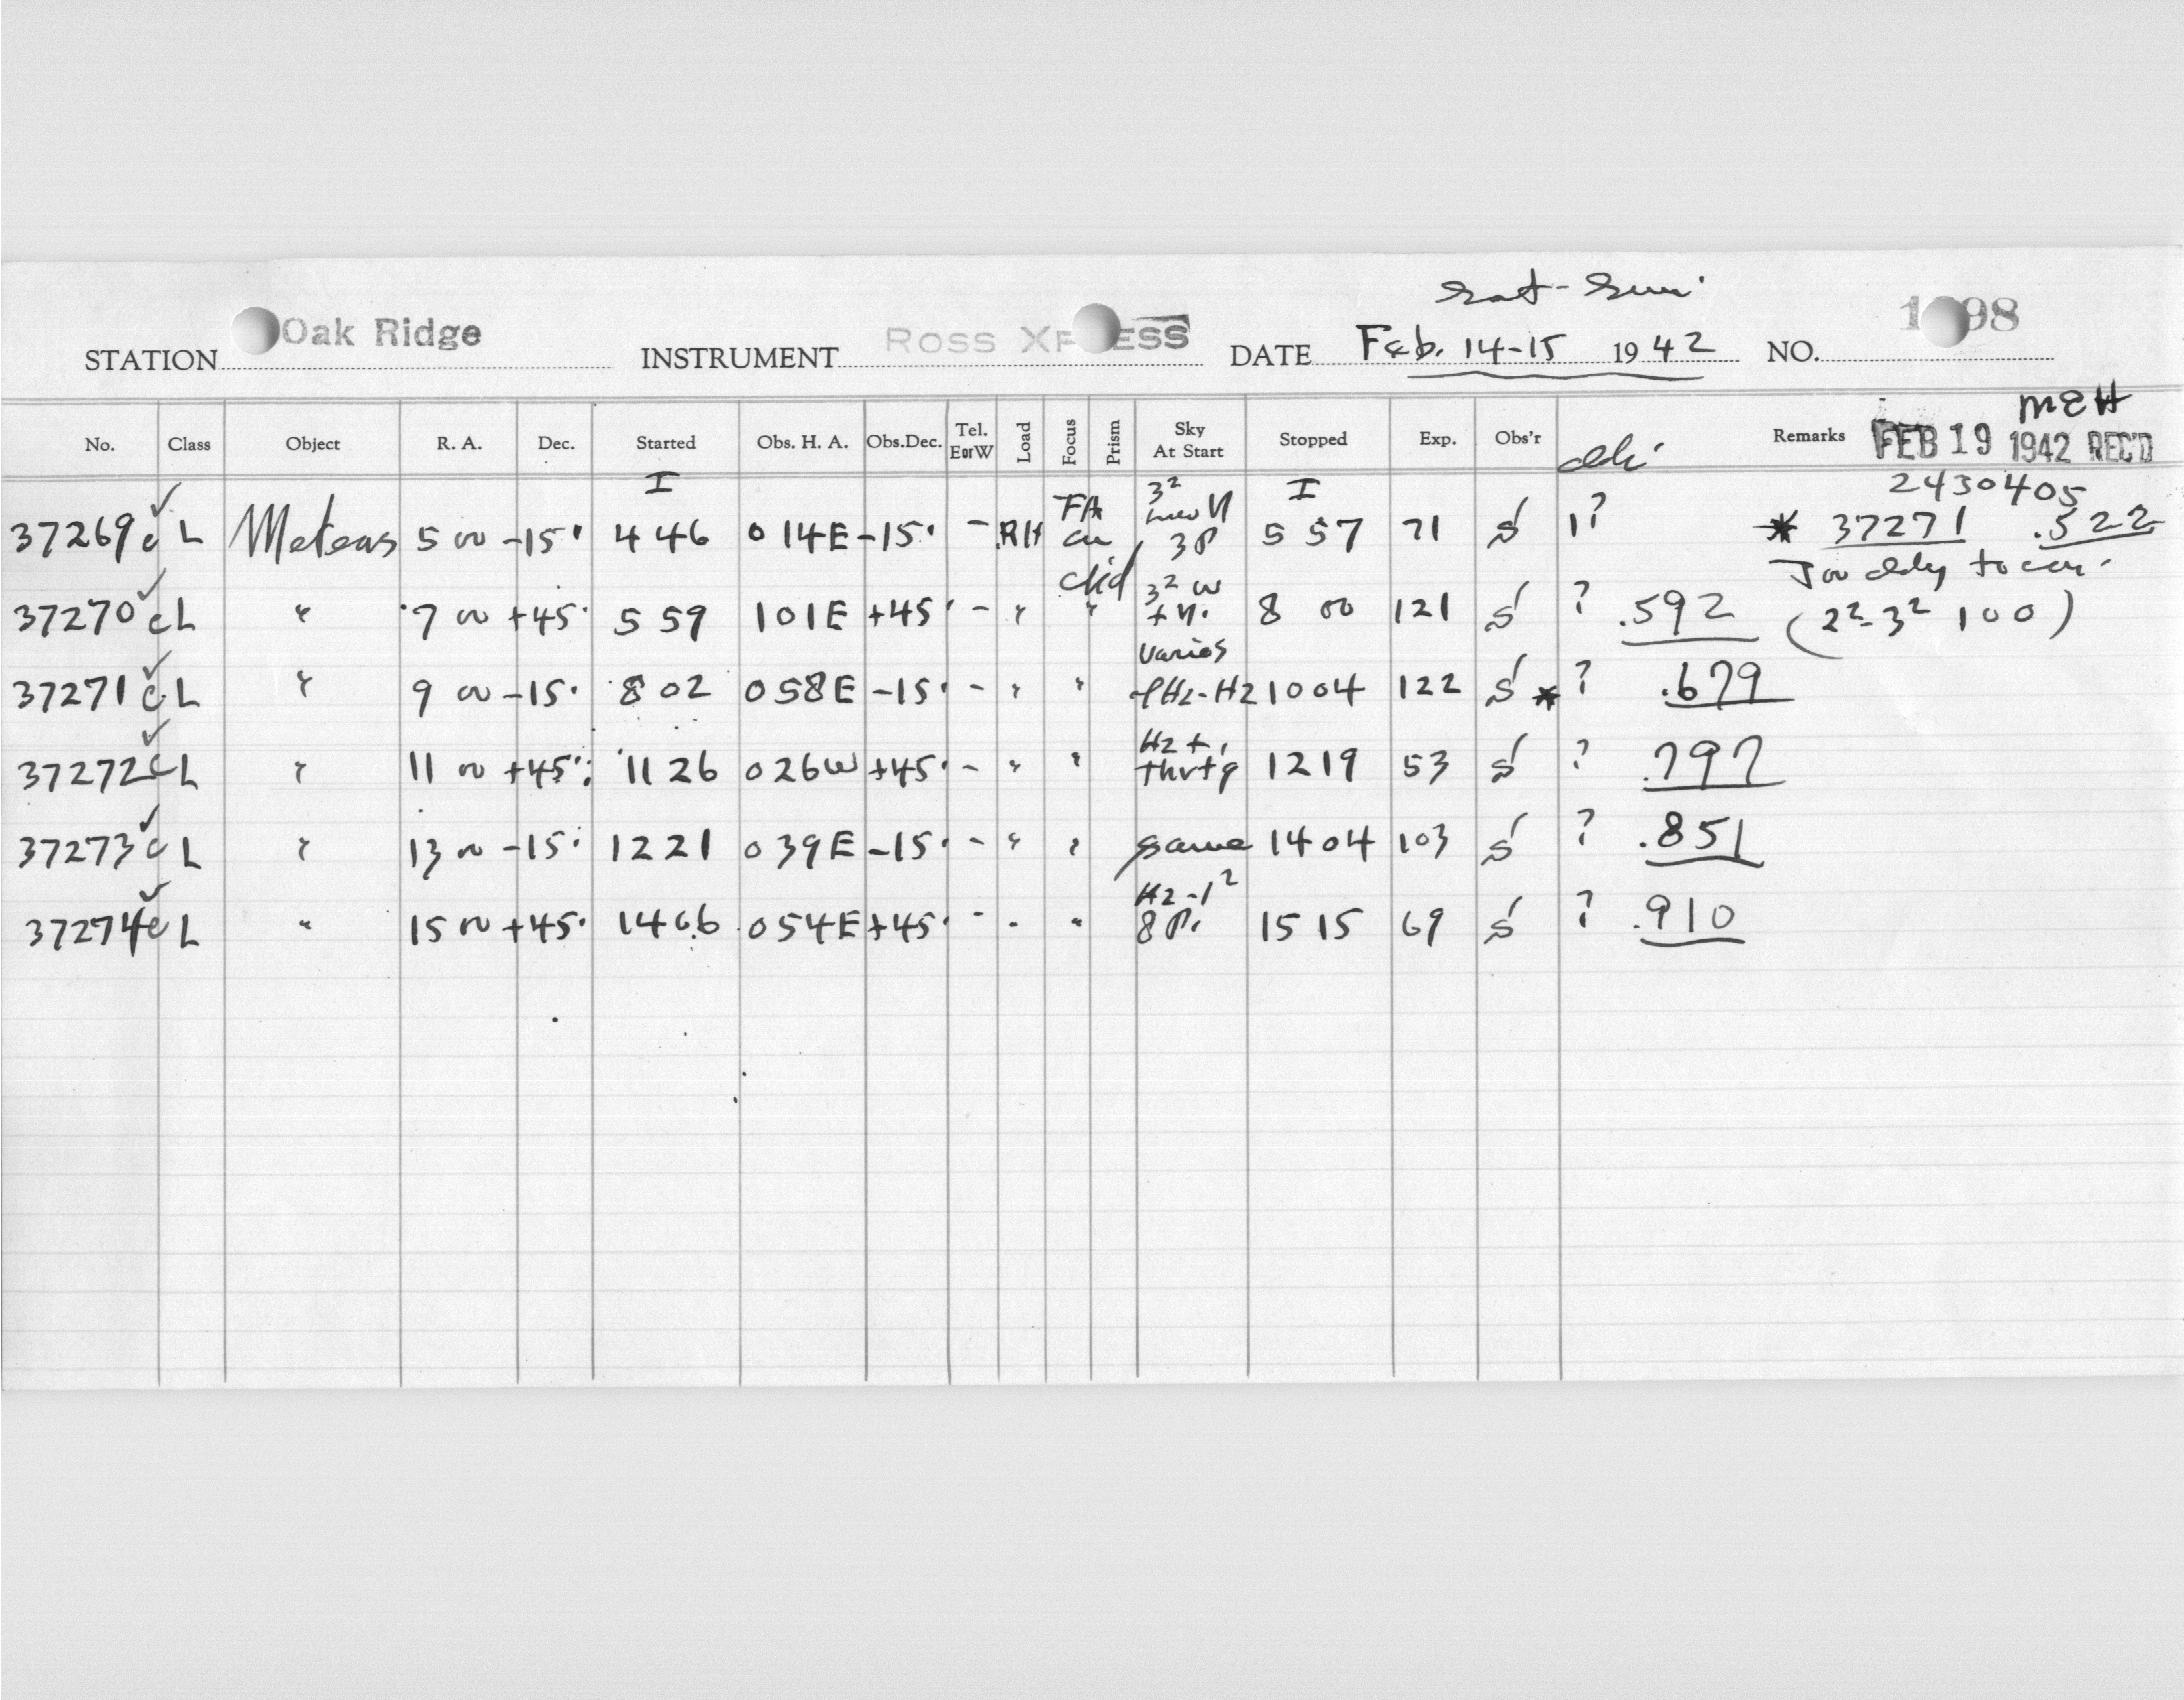 Sat-Sun.
STATION Oak Ridge INSTRUMENT ROSS XPRESS DATE Feb. 14-15 1942 NO. 98
MEH
No. Class Object R. A. Dec. Started Obs. H. A. Obs.Dec. Tel. EorW Load Focus Prism Sky At Start Stopped Exp. Obs'r Remarks FEB 19 1942 REC'D
I I 2430405
37269 c L Meteors 5 00 -15° 4 46 0 14E -15° - RH FA 3² 3P 5 57 71 S 1? * 37271 .522
37270 c L " 7 00 +45° 5 59 1 01E +45° - " " 3² W + N. 8 00 121 S ? .592 (2²-3² 100)
37271 c L " 9 00 -15° 8 02 0 58E -15° - " " Varies Hz-Hz 10 04 122 S * ? .679
37272 c L " 11 00 +45° 11 26 0 26W +45° - " " Hz + thrtg 12 19 53 S ? .797
37273 c L " 13 00 -15° 12 21 0 39E -15° - " " same 14 04 103 S ? .851
37274 c L " 15 00 +45° 14 06 0 54E +45° - " " Hz-1² 8P. 15 15 69 S ? .910